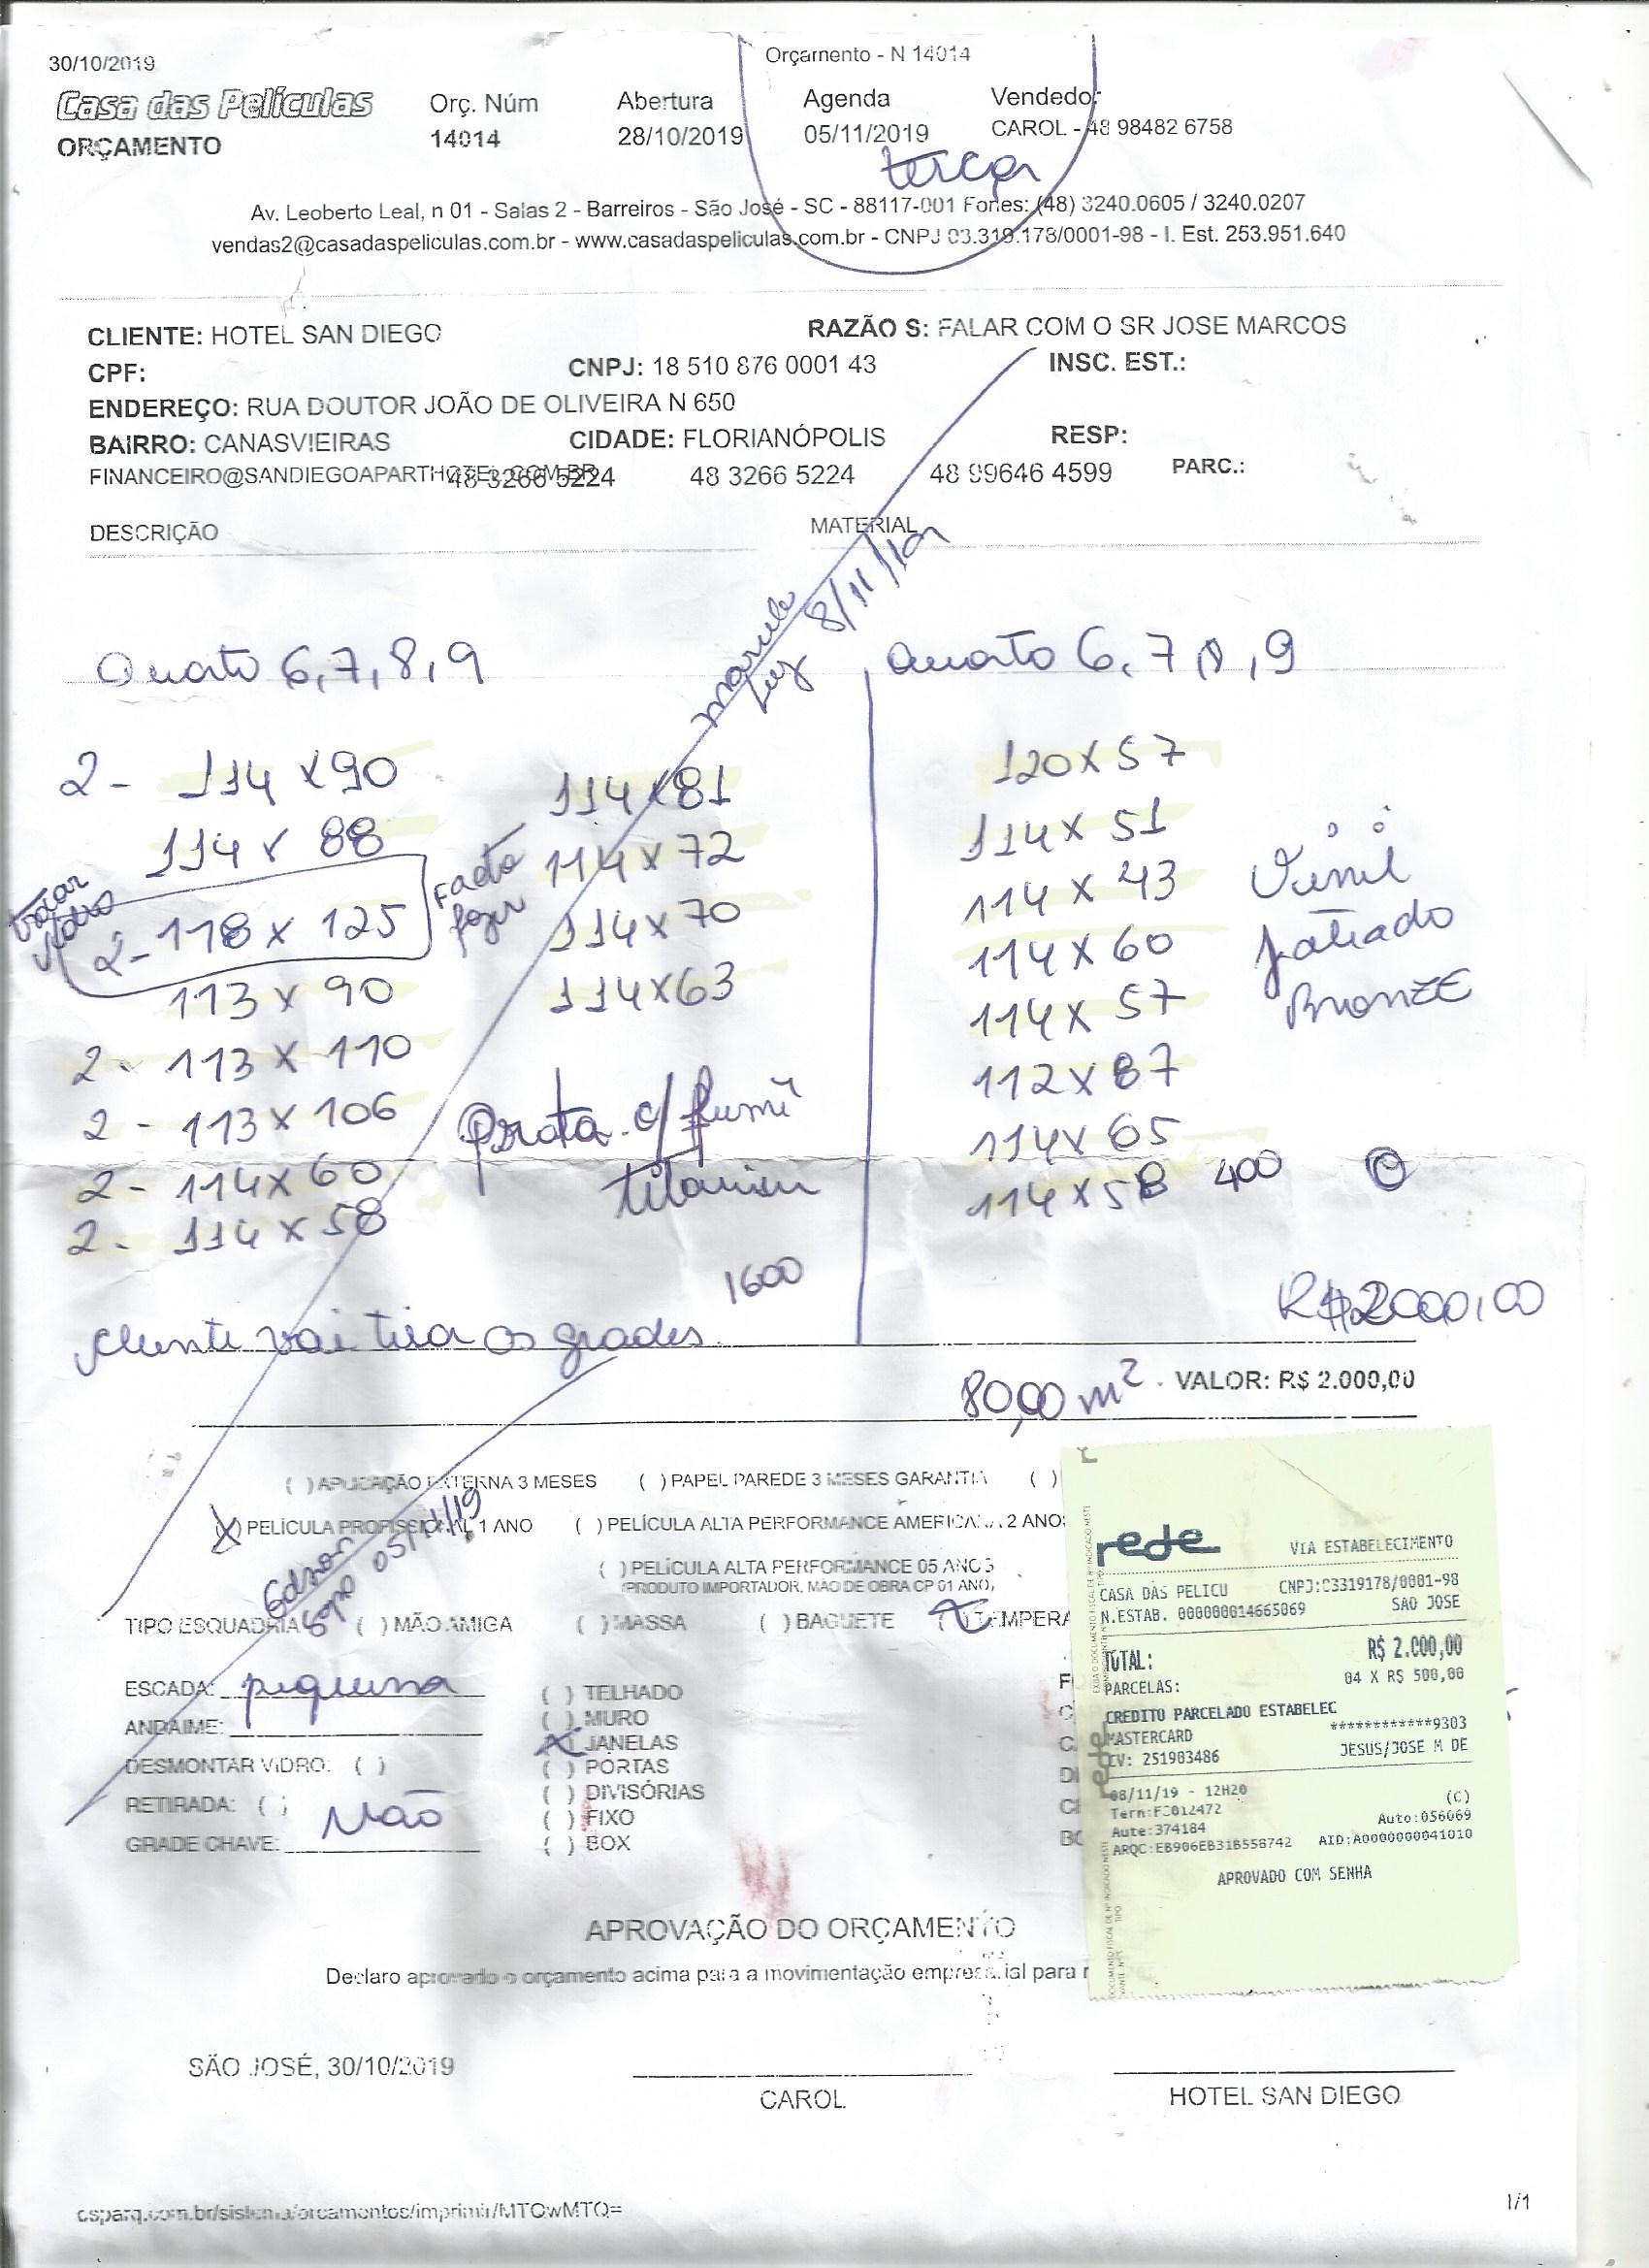 30/10/2019
Orçamento - N 14014
Casa das Películas
ORÇAMENTO
Orç. Núm
14014
Abertura
28/10/2019
Agenda
05/11/2019
terça
Vendedor
CAROL - 48 98482 6758
Av. Leoberto Leal, n 01 - Salas 2 - Barreiros - São José - SC - 88117-001 Fones: (48) 3240.0605 / 3240.0207
vendas2@casadaspeliculas.com.br - www.casadaspeliculas.com.br - CNPJ 03.319.178/0001-98 - I. Est. 253.951.640
CLIENTE: HOTEL SAN DIEGO
RAZÃO S: FALAR COM O SR JOSE MARCOS
CPF:
CNPJ: 18 510 876 0001 43
INSC. EST.:
ENDEREÇO: RUA DOUTOR JOÃO DE OLIVEIRA N 650
BAIRRO: CANASVIEIRAS
CIDADE: FLORIANÓPOLIS
RESP:
FINANCEIRO@SANDIEGOAPARTHOTEL.COM.BR
48 3266 5224
48 3266 5224
48 99646 4599
PARC.:
DESCRIÇÃO
MATERIAL
8/11/19
Quarto 6,7,8,9
2- 114 x 90
114 x 88
2- 118 x 125
113 x 90
2- 113 x 110
2 - 113 x 106
2 - 114 x 60
2 - 114 x 58
114 x 81
114 x 72
114 x 70
114 x 63
Prata c/ fumê
titanium
1600
cliente vai tira as grades
Quarto 6, 7, 8, 9
120 x 57
114 x 51
114 x 43
114 x 60
114 x 57
112 x 87
114 x 65
114 x 58 400
Vinil
jateado
Bronze
R$ 2000,00
80,00 m²
VALOR: R$ 2.000,00
( ) APLICAÇÃO EXTERNA 3 MESES ( ) PAPEL PAREDE 3 MESES GARANTIA ( )
(X) PELÍCULA PROFISSIONAL 1 ANO ( ) PELÍCULA ALTA PERFORMANCE AMERICANA 2 ANOS
( ) PELÍCULA ALTA PERFORMANCE 05 ANOS
(PRODUTO IMPORTADOR, MAO DE OBRA CP 01 ANO,
05/11/19
TIPO ESQUADRIA ( ) MÃO AMIGA ( ) MASSA ( ) BAGUETE (X) TEMPERA
ESCADA: pequena
ANDAIME:
DESMONTAR VIDRO: ( )
RETIRADA: ( )
Não
GRADE CHAVE:
( ) TELHADO
( ) MURO
(X) JANELAS
( ) PORTAS
( ) DIVISÓRIAS
( ) FIXO
( ) BOX
rede
VIA ESTABELECIMENTO
CASA DAS PELICU CNPJ:03319178/0001-98
N.ESTAB. 000000014665069 SAO JOSE
TOTAL: R$ 2.000,00
PARCELAS: 04 X R$ 500,00
CREDITO PARCELADO ESTABELEC
MASTERCARD ************9303
CV: 251903486 JESUS/JOSE M DE
08/11/19 - 12H20 (C)
Term:FC012472 Auto:056069
Aute:374184
ARQC:EB906EB31B558742 AID:A0000000041010
APROVADO COM SENHA
APROVAÇÃO DO ORÇAMENTO
Declaro aprovado o orçamento acima para a movimentação empresarial para
SÃO JOSÉ, 30/10/2019
CAROL
HOTEL SAN DIEGO
csparq.com.br/sistema/orcamentos/imprimir/MTQwMTQ=
1/1